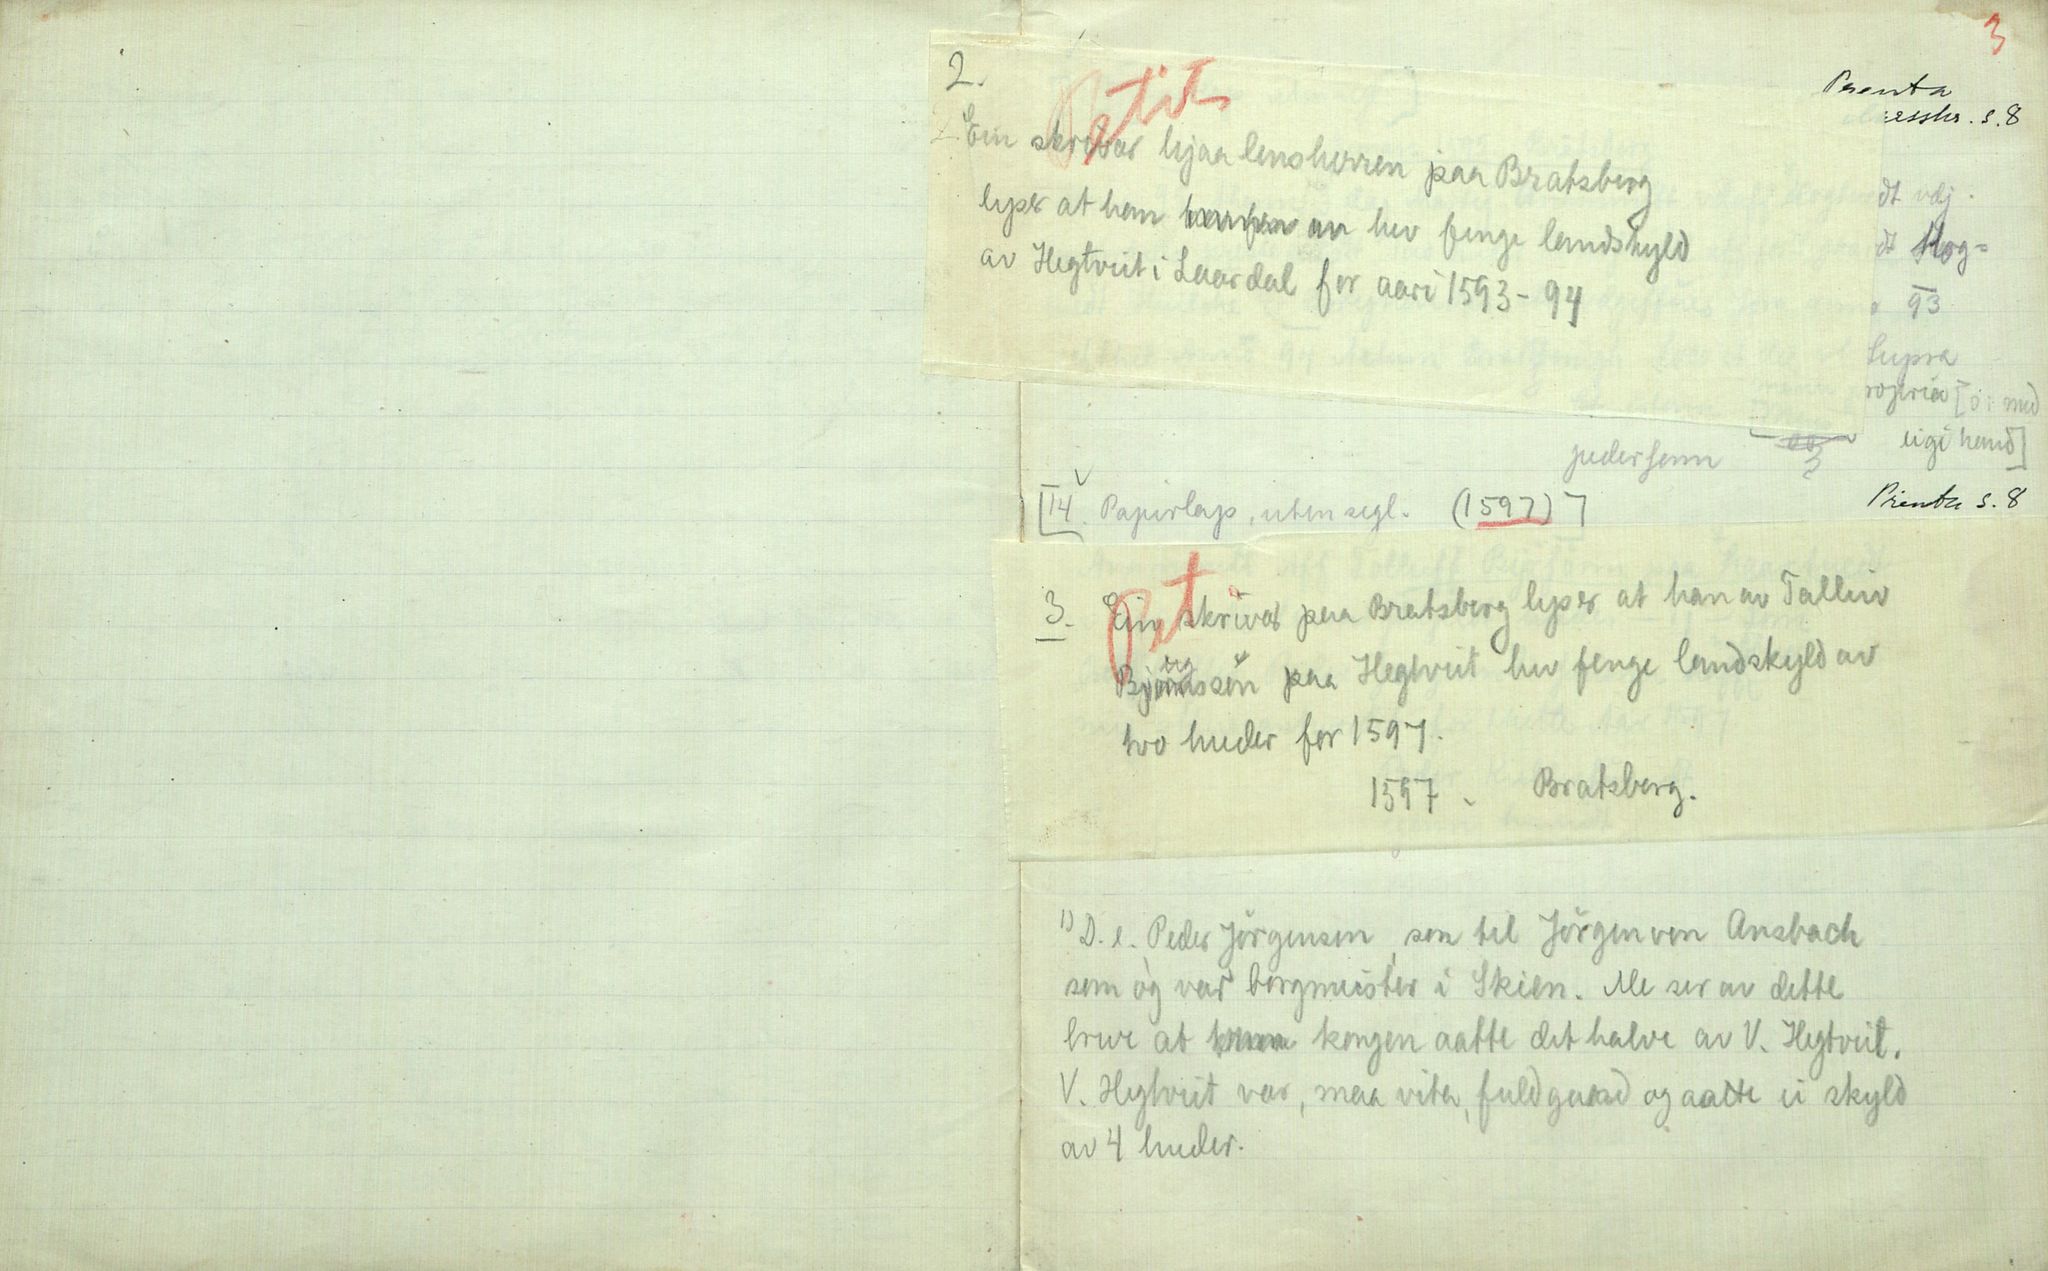 3
2.
Petit
Prenta
s. 8
Ein skrivar hjaa lensherren paa Bratsberg
lyser at han hev fenge landskyld
av Hegtveit i Laardal for aari 1593-94
dt vdj.
dt Hog-
93
Supra
propria [ɔ: med
eigi hand]
pedersenn
[14. Papirlapp, uten segl. (1597)]
Prenta s. 8
Pet
3. Ein skrivar paa Bratsberg lyser at han av Talleiv
Bjørgsson paa Hegtveit hev fenge landskyld av
tvo huder for 1597.
1597. Bratsberg.
1) D. e. Peder Jörgensen, son til Jörgen von Ansbach
som òg var borgmeister i Skien. Me ser av dette
breve at kongen aatte det halve av V. Hegtveit.
V. Hegtveit var, maa vita, fuldgaard og aatte ei skyld
av 4 huder.